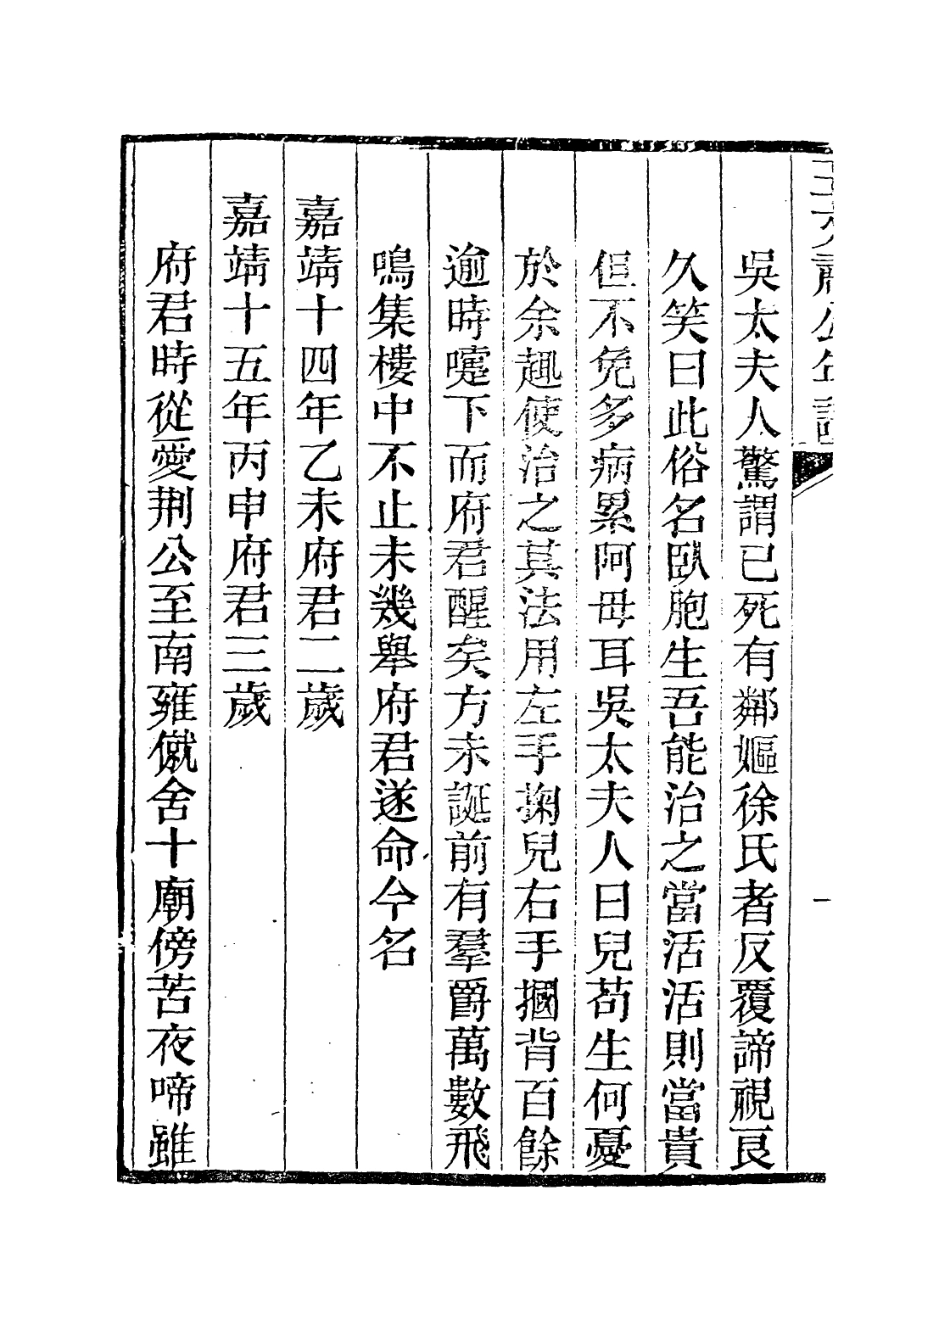 吳太夫人驚謂已死有鄰嫗徐氏者反覆諦視良
久笑曰此俗名臥胞生吾能治之當活活則當貴
但不免多病累阿母耳吳太夫人曰兒苟生何憂
於余趣使治之其法用左手掬兒右手摑背百餘
逾時嚏下而府君醒矣方未誕前有羣爵萬數飛
鳴集樓中不止未幾舉府君遂命今名
嘉靖十四年乙未府君二歲
嘉靖十五年丙申府君三歲
府君時從愛荆公至南雍僦舍十廟傍苦夜啼雖